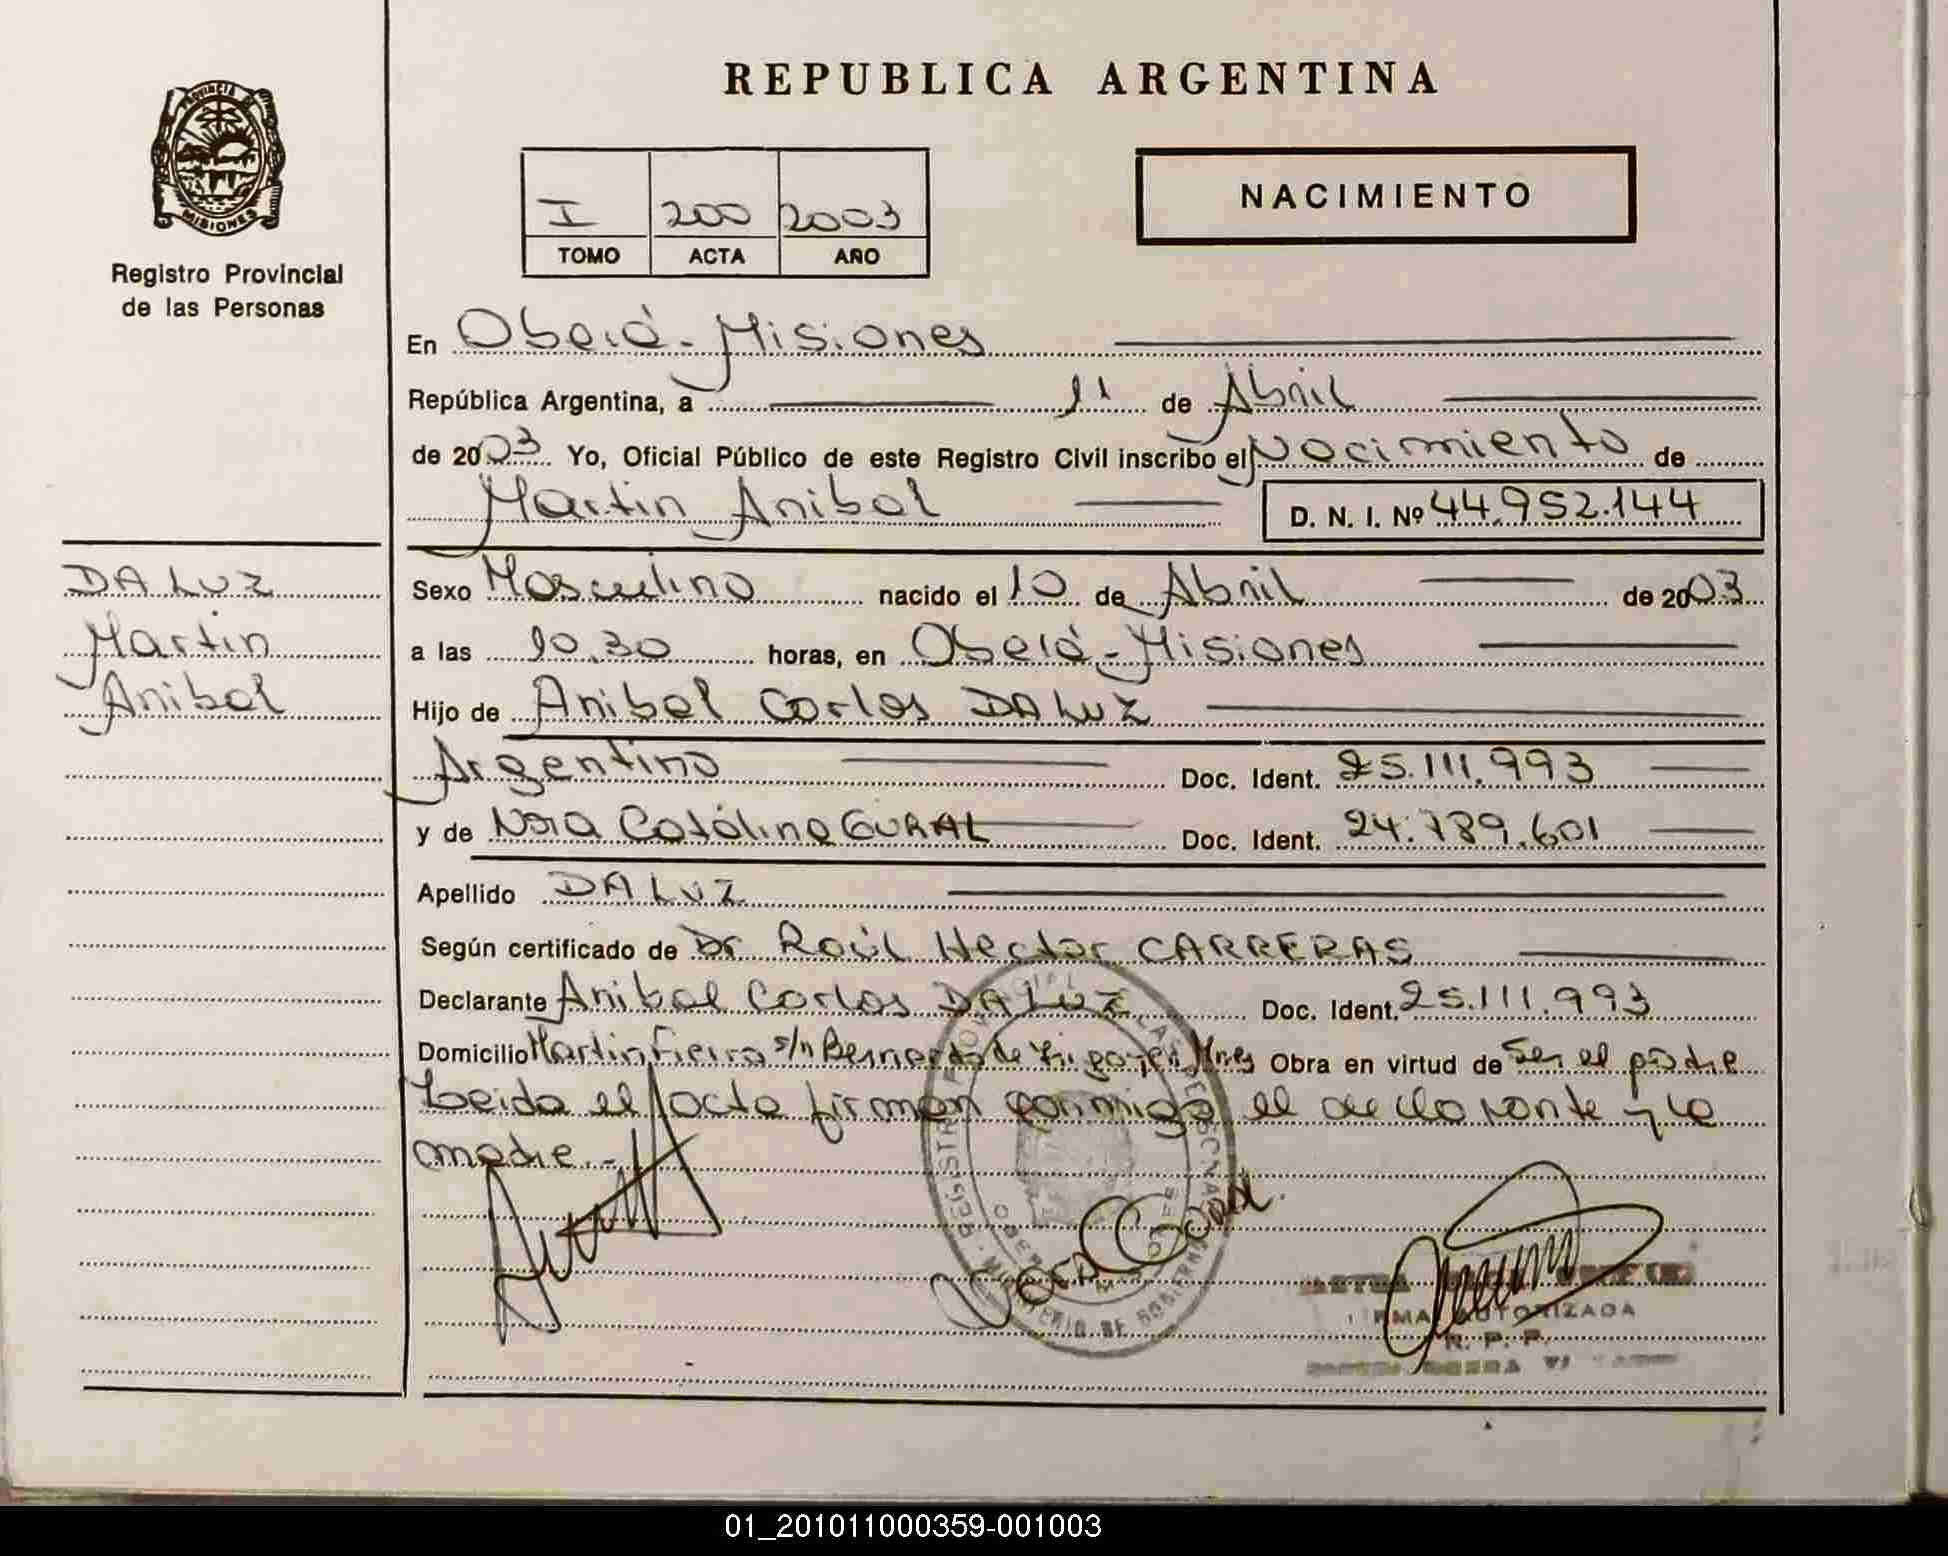 REPUBLICA ARGENTINA
PROVINCIA DE MISIONES
Registro Provincial
de las Personas
I 200 2003
TOMO ACTA AÑO
NACIMIENTO
En Oberá - Misiones
República Argentina, a 11 de Abril
de 2003 Yo, Oficial Público de este Registro Civil inscribo el Nacimiento de
Martin Anibal D. N. I. Nº 44.952.144
DA LUZ
Martin
Anibal
Sexo Masculino nacido el 10 de Abril de 2003
a las 10.30 horas, en Oberá - Misiones
Hijo de Anibal Carlos DA LUZ
Argentino Doc. Ident. 25.111.993
y de Nora Catalina GURAL Doc. Ident. 24.789.601
Apellido DA LUZ
Según certificado de Dr Raúl Hector CARRERAS
Declarante Anibal Carlos DA LUZ Doc. Ident. 25.111.993
Domicilio Martin Fierro s/n Bernardo de Irigoyen Mnes Obra en virtud de Ser el padre
Leida el acta firman conmigo el declarante y la
madre.-
FIRMA AUTORIZADA
R. P. P.
01_201011000359-001003